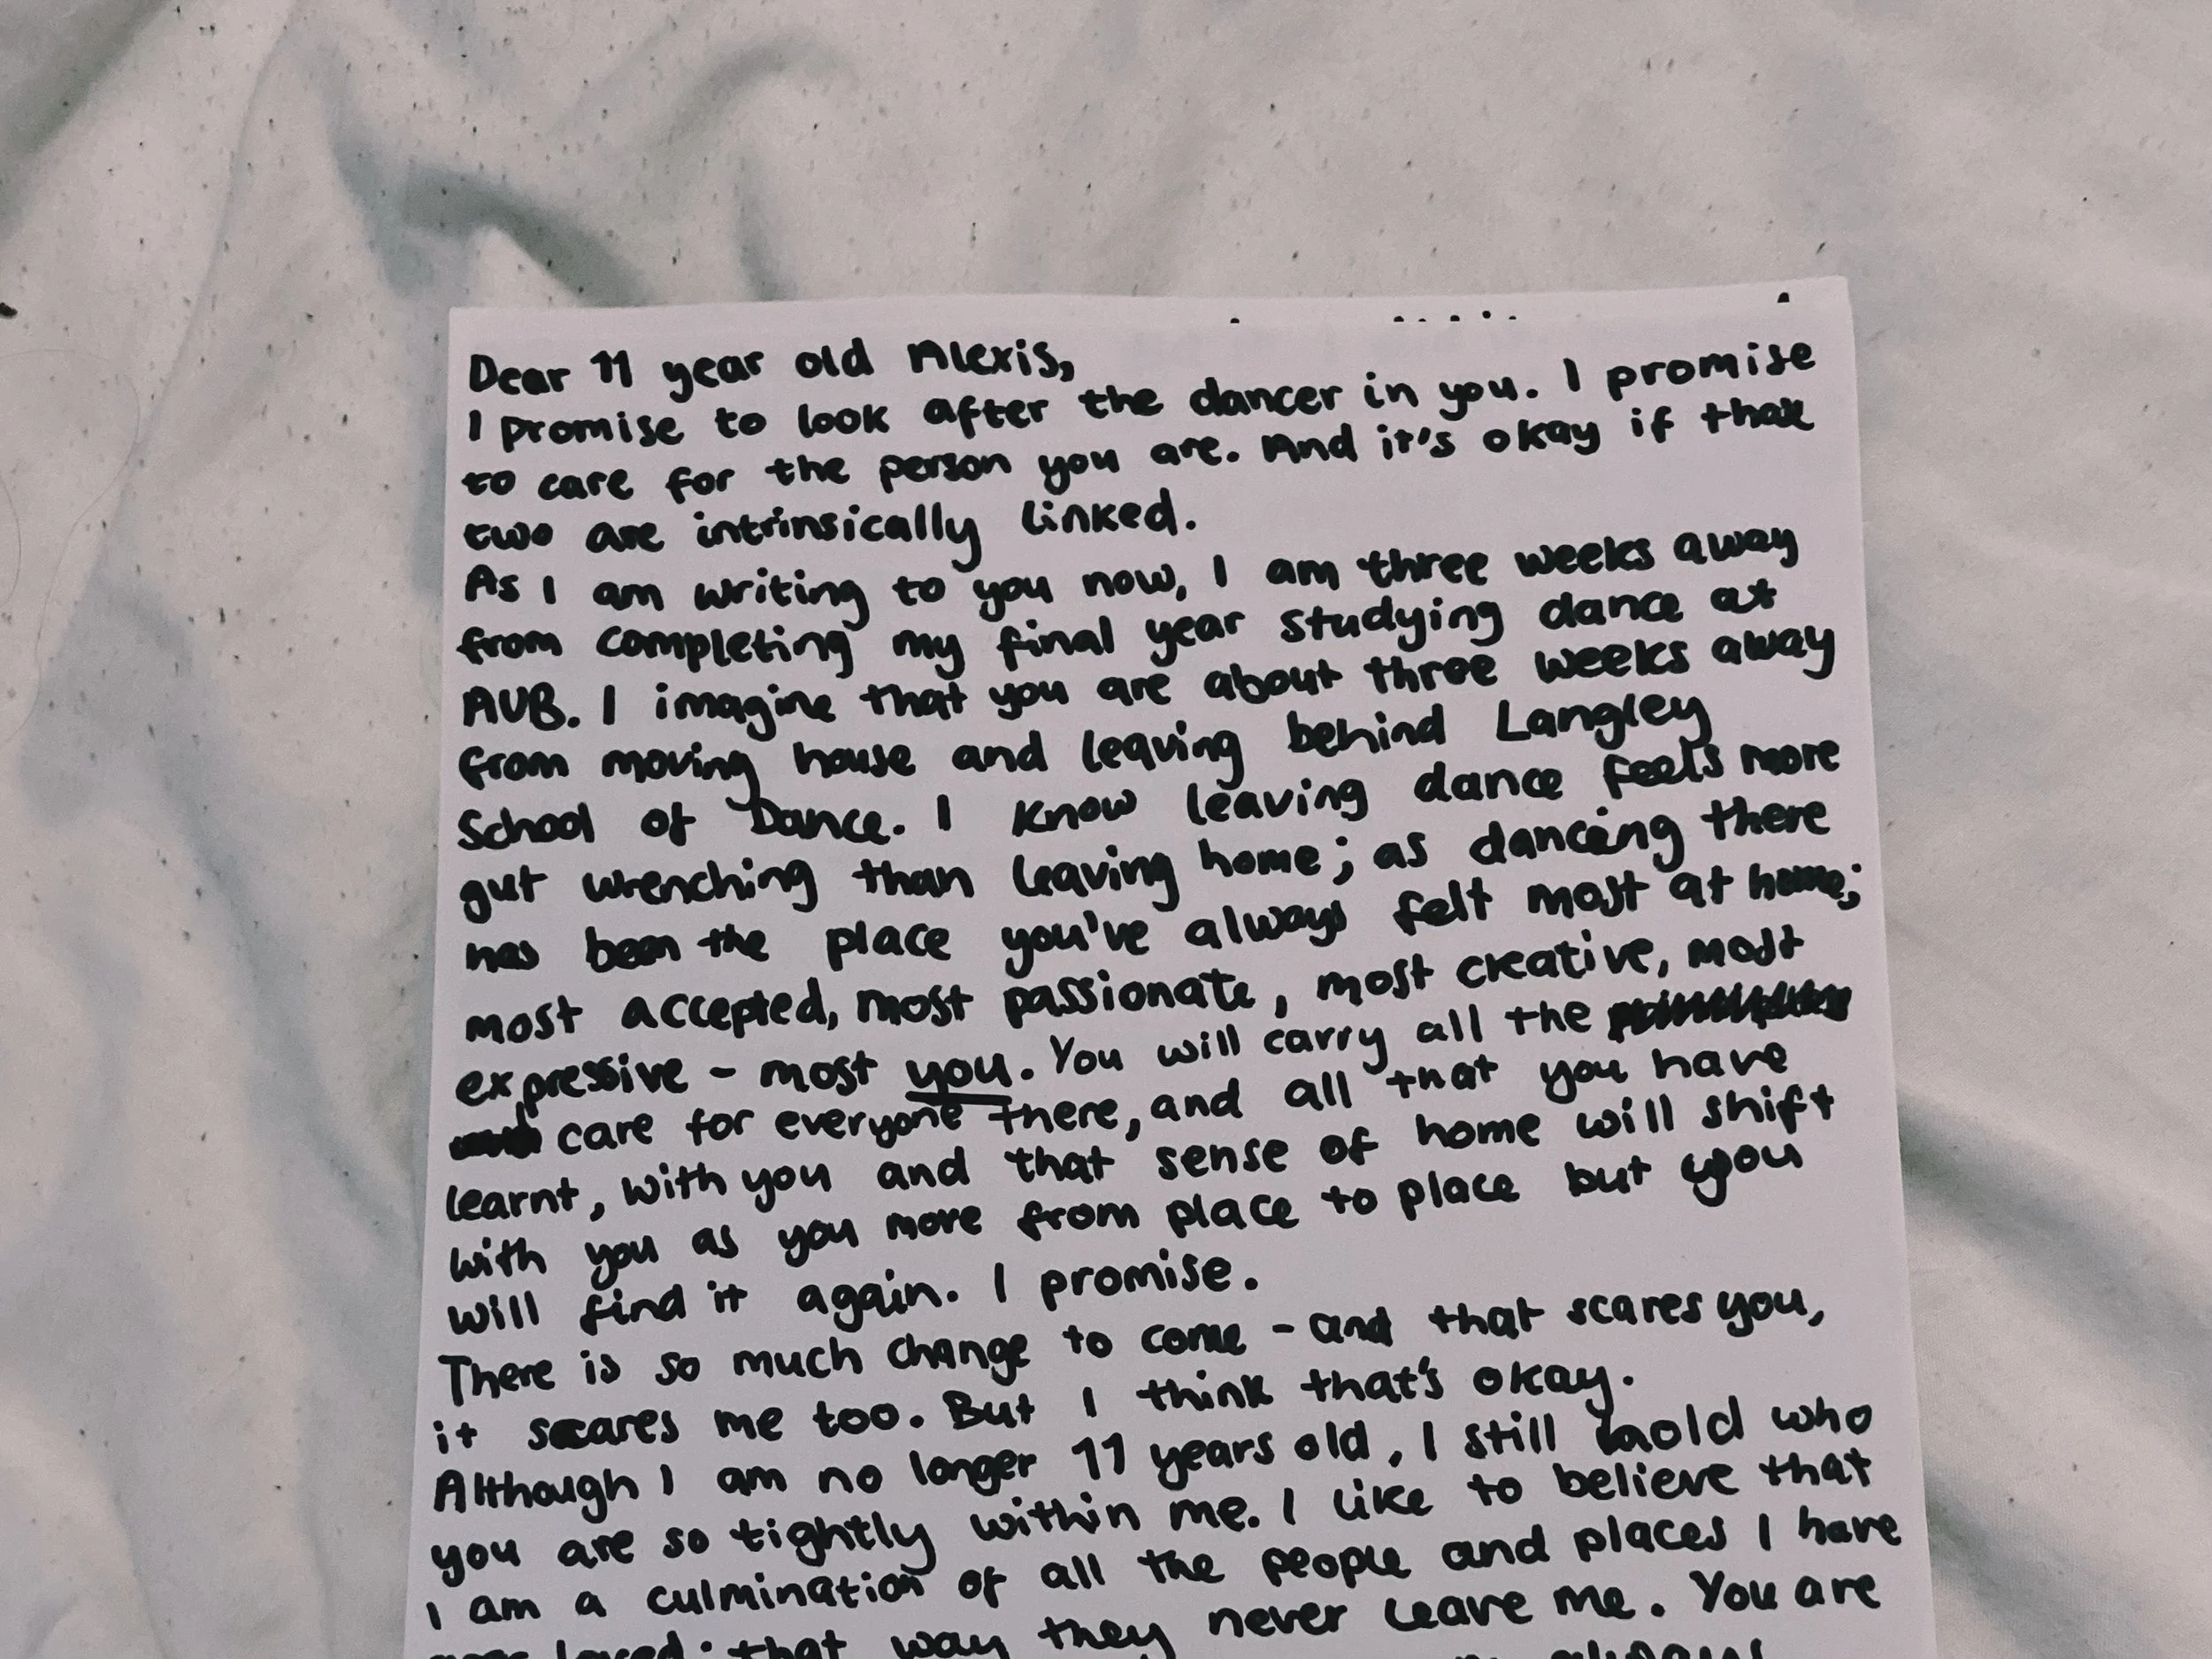 Dear 11 year old Alexis,
I promise to look after the dancer in you. I promise
to care for the person you are. And it's okay if that
two are intrinsically linked.
As I am writing to you now, I am three weeks away
from completing my final year studying dance at
AUB. I imagine that you are about three weeks away
from moving house and leaving behind Langley
School of Dance. I know leaving dance feels more
gut wrenching than leaving home; as dancing there
has been the place you've always felt most at home;
most accepted, most passionate, most creative, most
expressive - most you. You will carry all the
care for everyone there, and all that you have
learnt, with you and that sense of home will shift
with you as you move from place to place but you
will find it again. I promise.
There is so much change to come - and that scares you,
it scares me too. But I think that's okay.
Although I am no longer 11 years old, I still hold who
you are so tightly within me. I like to believe that
I am a culmination of all the people and places I have
loved; that way they never leave me. You are
always